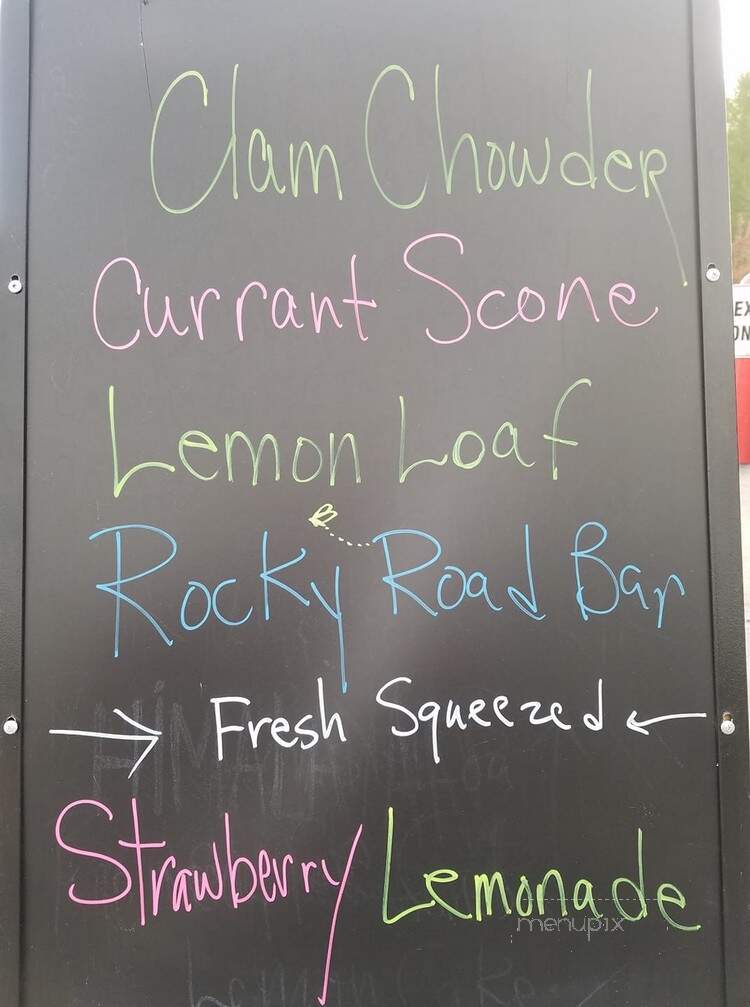 Clam Chowder
Currant Scone
Lemon Loaf
Rocky Road Bar
Fresh Squeezed
Strawberry Lemonade
menupix
EX
ON